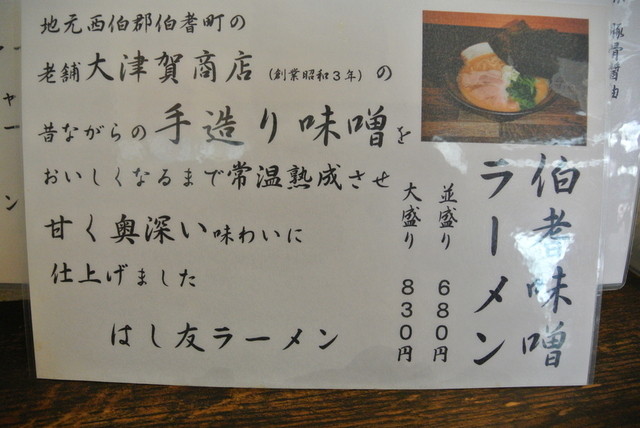 地元西伯郡伯耆町の
老舗大津賀商店（創業昭和３年）の
昔ながらの手造り味噌を
おいしくなるまで常温熟成させ
甘く奥深い味わいに
仕上げました
はし友ラーメン
伯耆味噌
ラーメン
並盛り ６８０円
大盛り ８３０円
豚骨醤油